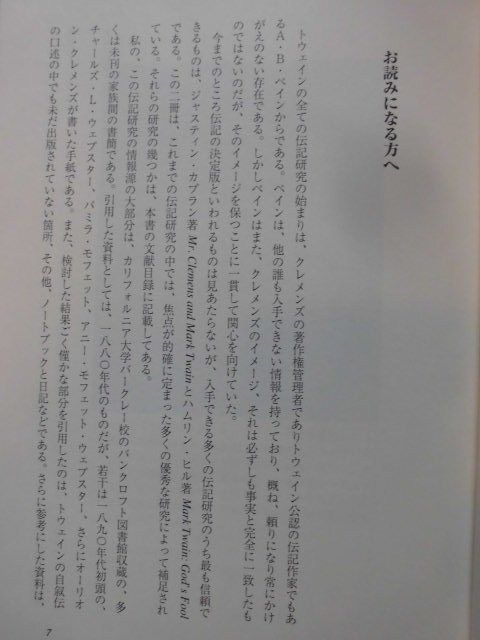 お読みになる方へ
トウェインの全ての伝記研究の始まりは、クレメンズの著作権管理者でありトウェイン公認の伝記作家でもあ
るA・B・ペインからである。ペインは、他の誰も入手できない情報を持っており、概ね、頼りになり常にかけ
がえのない存在である。しかしペインはまた、クレメンズのイメージ、それは必ずしも事実と完全に一致したも
のではないのだが、そのイメージを保つことに一貫して関心を向けていた。
今までのところ伝記の決定版といわれるものは見あたらないが、入手できる多くの伝記研究のうち最も信頼で
きるものは、ジャスティン・カプラン著 Mr. Clemens and Mark Twain とハムリン・ヒル著 Mark Twain: God's Fool
である。この二冊は、これまでの伝記研究の中では、焦点が的確に定まった多くの優秀な研究によって補足され
ている。それらの研究の幾つかは、本書の文献目録に記載してある。
私の、この伝記研究の情報源の大部分は、カリフォルニア大学バークレー校のバンクロフト図書館収蔵の、多
くは未刊の家族間の書簡である。引用した資料としては、一八八〇年代のものだが、若干は一八九〇年代初頭の、
チャールズ・L・ウェブスター、パミラ・モフェット、アニー・モフェット・ウェブスター、さらにオーリオ
ン・クレメンズが書いた手紙である。また、検討した結果ごく僅かな部分を引用したのは、トウェインの自叙伝
の口述の中でも未だ出版されていない箇所、その他、ノートブックと日記などである。さらに参考にした資料は、
7